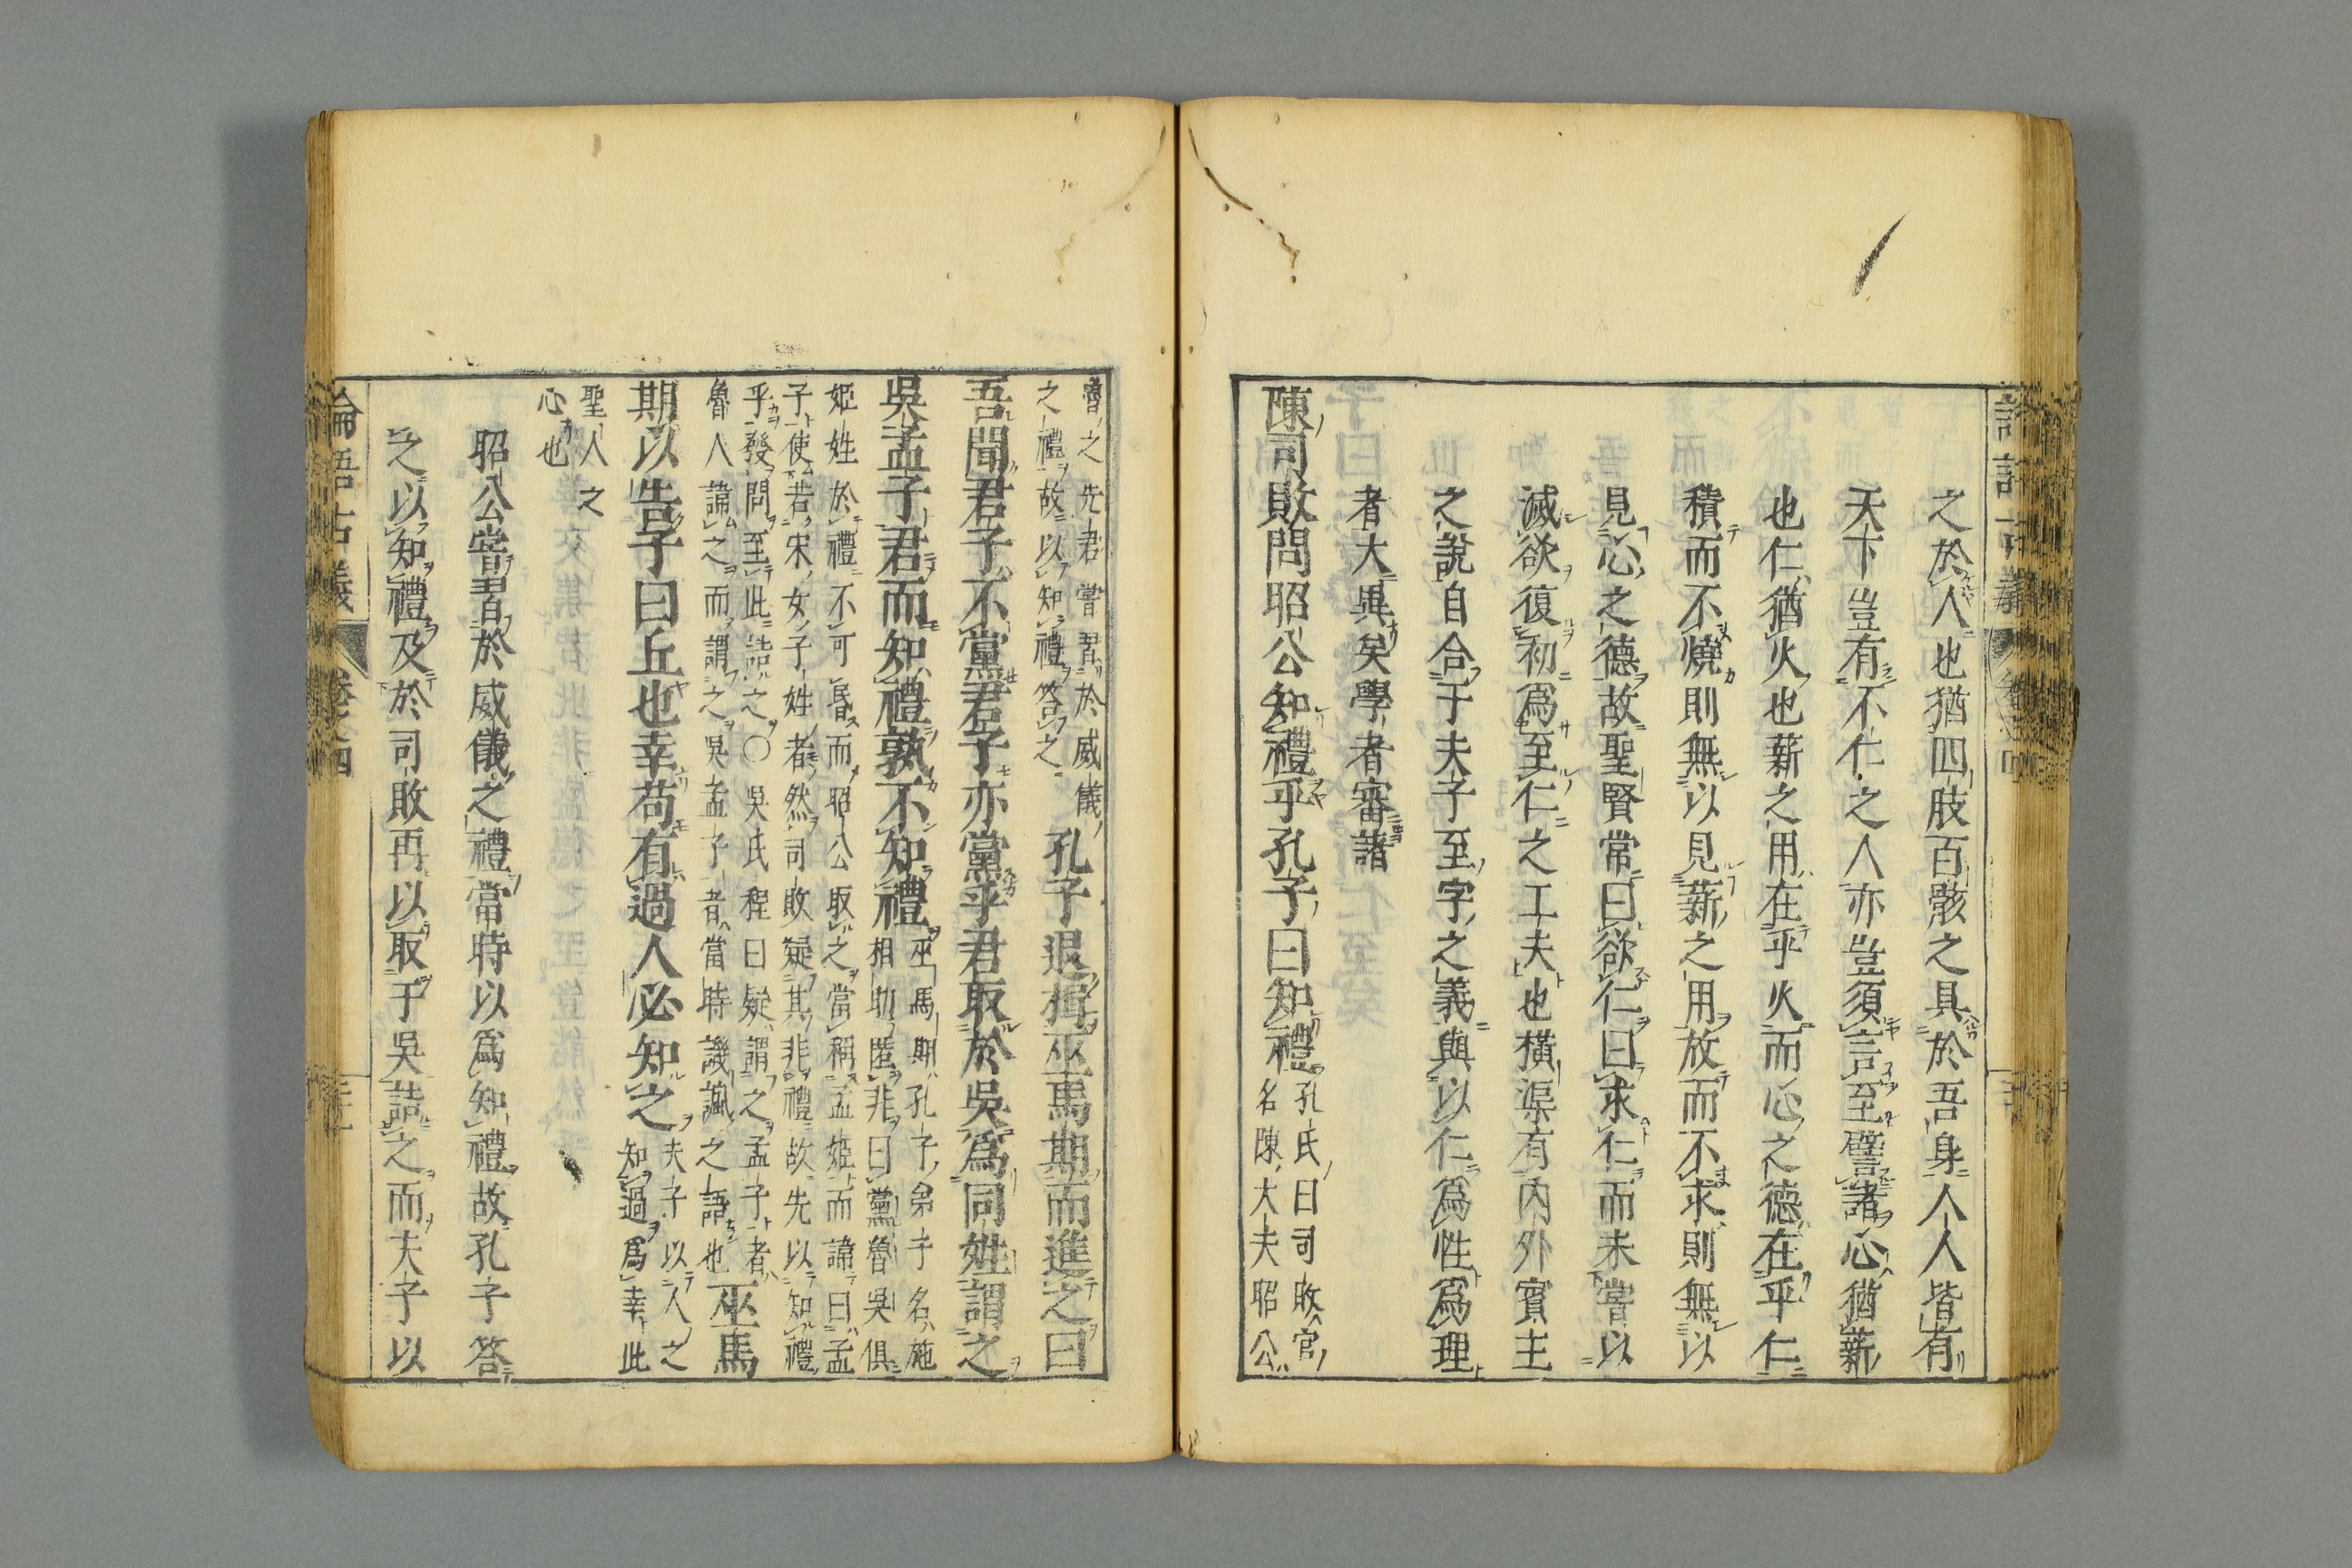 之於人也猶四肢百骸之具於吾身人人皆有
天下豈有不仁之人亦豈須言至譬諸心猶薪
也仁猶火也薪之用在乎火而心之德在乎仁
積而不燒則無以見薪之用放而不求則無以
見心之德故聖賢常曰欲仁曰求仁而未嘗以
滅欲復初爲至仁之工夫也橫渠有內外賓主
之說自合于夫子至字之義與以仁爲性爲理
者大異矣學者審諸
陳司敗問昭公知禮乎孔子曰知禮
孔氏曰司敗官
名陳大夫昭公
魯之先君嘗習於威儀
之禮故以知禮答之
孔子退揖巫馬期而進之曰
吾聞君子不黨君子亦黨乎君取於吳爲同姓謂之
吳孟子君而知禮孰不知禮
巫馬期孔子弟子名施
相助匿非曰黨魯吳俱
姬姓於禮不可昏而昭公取之當稱孟姬而諱曰孟
子使若宋女子姓者然司敗疑其非禮故先以知禮
乎發問至此詰之○吳氏程曰疑謂之孟子者
魯人諱之而謂之吳孟子者當時譏諷之語也
巫馬
期以告子曰丘也幸苟有過人必知之
夫子以人之
知過爲幸此
聖人之
心也
昭公嘗習於威儀之禮當時以爲知禮故孔子答
之以知禮及於司敗再以取于吳詰之而夫子以
論語古義
卷之四